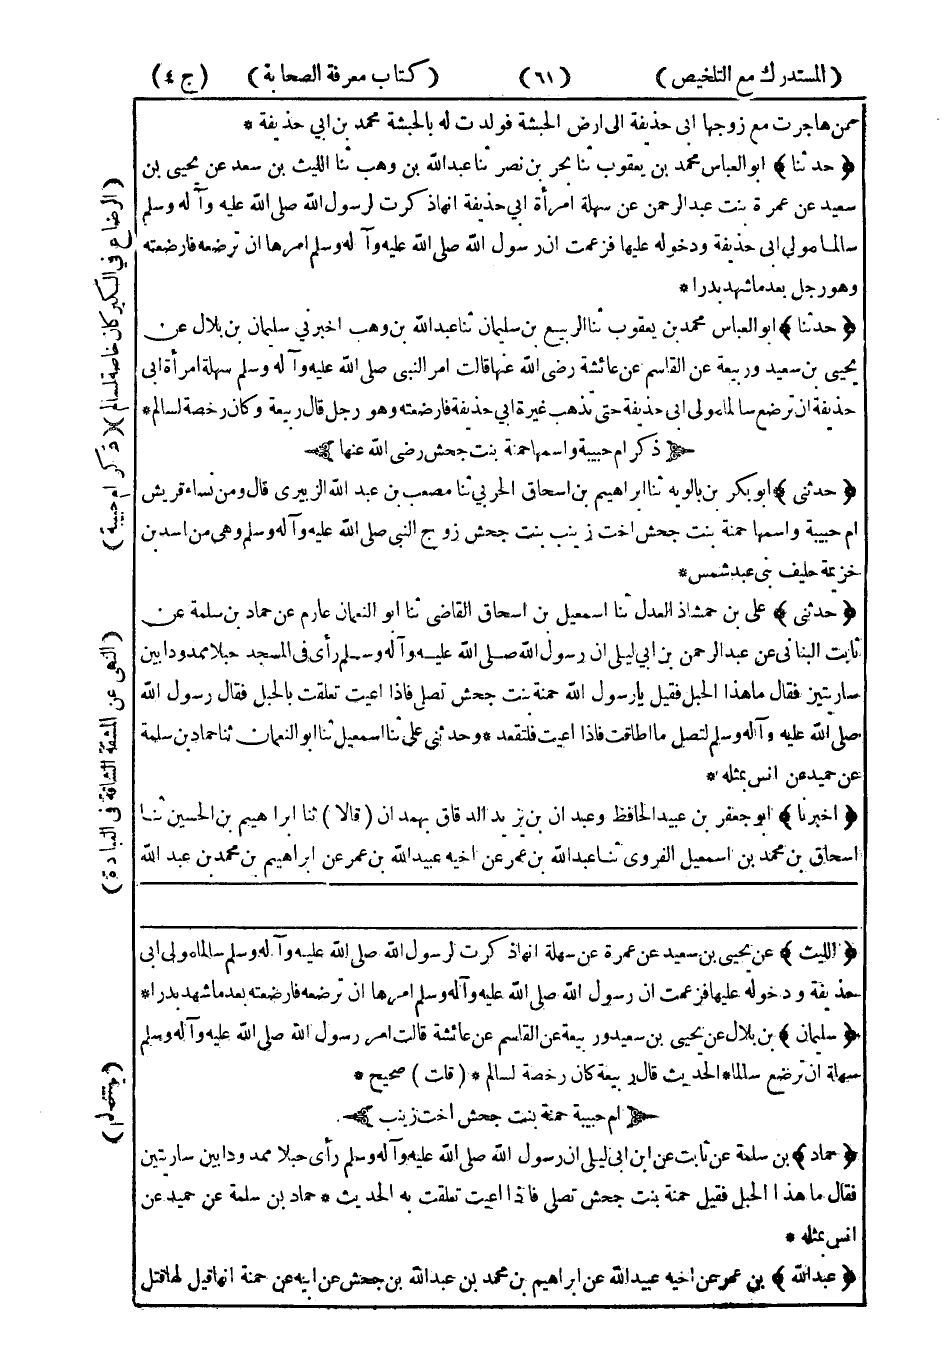 (المستدرك مع التلخيص) (٦١) (كتاب معرفة الصحابة) (ج ٤)
ممن هاجرت مع زوجها ابى حذيفة الى ارض الحبشة فولدت له بالحبشة محمد بن ابي حذيفة *
﴿ حدثنا ﴾ ابو العباس محمد بن يعقوب ثنا بحر بن نصر ثنا عبد الله بن وهب ثنا الليث بن سعد عن يحيى بن
سعيد عن عمرة بنت عبد الرحمن عن سهلة امرأة ابي حذيفة انها ذكرت لرسول الله صلى الله عليه وآله وسلم
سالما مولى ابى حذيفة ودخوله عليها فزعمت ان رسول الله صلى الله عليه وآله وسلم امرها ان ترضعه فارضعته
وهو رجل بعد ما شهد بدرا *
﴿ حدثنا ﴾ ابو العباس محمد بن يعقوب ثنا الربيع بن سليمان ثنا عبد الله بن وهب اخبرني سليمان بن بلال عن
يحيى بن سعيد وربيعة عن القاسم عن عائشة رضى الله عنها قالت امر النبى صلى الله عليه وآله وسلم سهلة امرأة ابى
حذيفة ان ترضع سالما مولى ابى حذيفة حتى تذهب غيرة ابي حذيفة فارضعته وهو رجل قال ربيعة وكان رخصة لسالم *
ذكر ام حبيبة واسمها حمنة بنت جحش رضى الله عنها
﴿ حدثنى ﴾ ابو بكر بن بالويه ثنا ابراهيم بن اسحاق الحربي ثنا مصعب بن عبد الله الزبيرى قال ومن نساء قريش
ام حبيبة واسمها حمنة بنت جحش اخت زينب بنت جحش زوج النبى صلى الله عليه وآله وسلم وهى من اسد بن
خزيمة حليف بنى عبد شمس *
﴿ حدثنى ﴾ على بن حمشاذ العدل ثنا اسمعيل بن اسحاق القاضى ثنا ابو النعمان عارم عن حماد بن سلمة عن
ثابت البنانى عن عبد الرحمن بن ابي ليلى ان رسول الله صلى الله عليه وآله وسلم رأى فى المسجد حبلا ممدودا بين
ساريتين فقال ما هذا الحبل فقيل يا رسول الله حمنة بنت جحش تصلى فاذا اعيت تعلقت بالحبل فقال رسول الله
صلى الله عليه وآله وسلم لتصل ما اطاقت فاذا اعيت فلتقعد * وحدثنى على ثنا اسمعيل ثنا ابو النعمان ثنا حماد بن سلمة
عن حميد عن انس بمثله *
﴿ اخبرنا ﴾ ابو جعفر بن عبيد الحافظ وعبدان بن يزيد الدقاق بهمدان ( قالا ) ثنا ابراهيم بن الحسين ثنا
اسحاق بن محمد بن اسمعيل الفروى ثنا عبد الله بن عمر عن اخيه عبيد الله بن عمر عن ابراهيم بن محمد بن عبد الله
﴿ الليث ﴾ عن يحيى بن سعيد عن عمرة عن سهلة انها ذكرت لرسول الله صلى الله عليه وآله وسلم سالما مولى ابى
حذيفة ودخوله عليها فزعمت ان رسول الله صلى الله عليه وآله وسلم امرها ان ترضعه فارضعته بعد ما شهد بدرا *
﴿ سليمان ﴾ بن بلال عن يحيى بن سعيد وربيعة عن القاسم عن عائشة قالت امر رسول الله صلى الله عليه وآله وسلم
سهلة ان ترضع سالما * الحديث قال ربيعة كان رخصة لسالم * ( قلت ) صحيح *
ام حبيبة حمنة بنت جحش اخت زينب
﴿ حماد ﴾ بن سلمة عن ثابت عن ابن ابى ليلى ان رسول الله صلى الله عليه وآله وسلم رأى حبلا ممدودا بين ساريتين
فقال ما هذا الحبل فقيل حمنة بنت جحش تصلى فاذا اعيت تعلقت به الحديث * حماد بن سلمة عن حميد عن
انس بمثله *
﴿ عبد الله ﴾ بن عمر عن اخيه عبيد الله عن ابراهيم بن محمد بن عبد الله بن جحش عن ابيه عن حمنة انها قيل لها قتل
(الرضاع في الكبر كان خاصة لسالم) (ذكر ام حبيبة)
(النهى عن المشقة الشاقة فى العبادة)